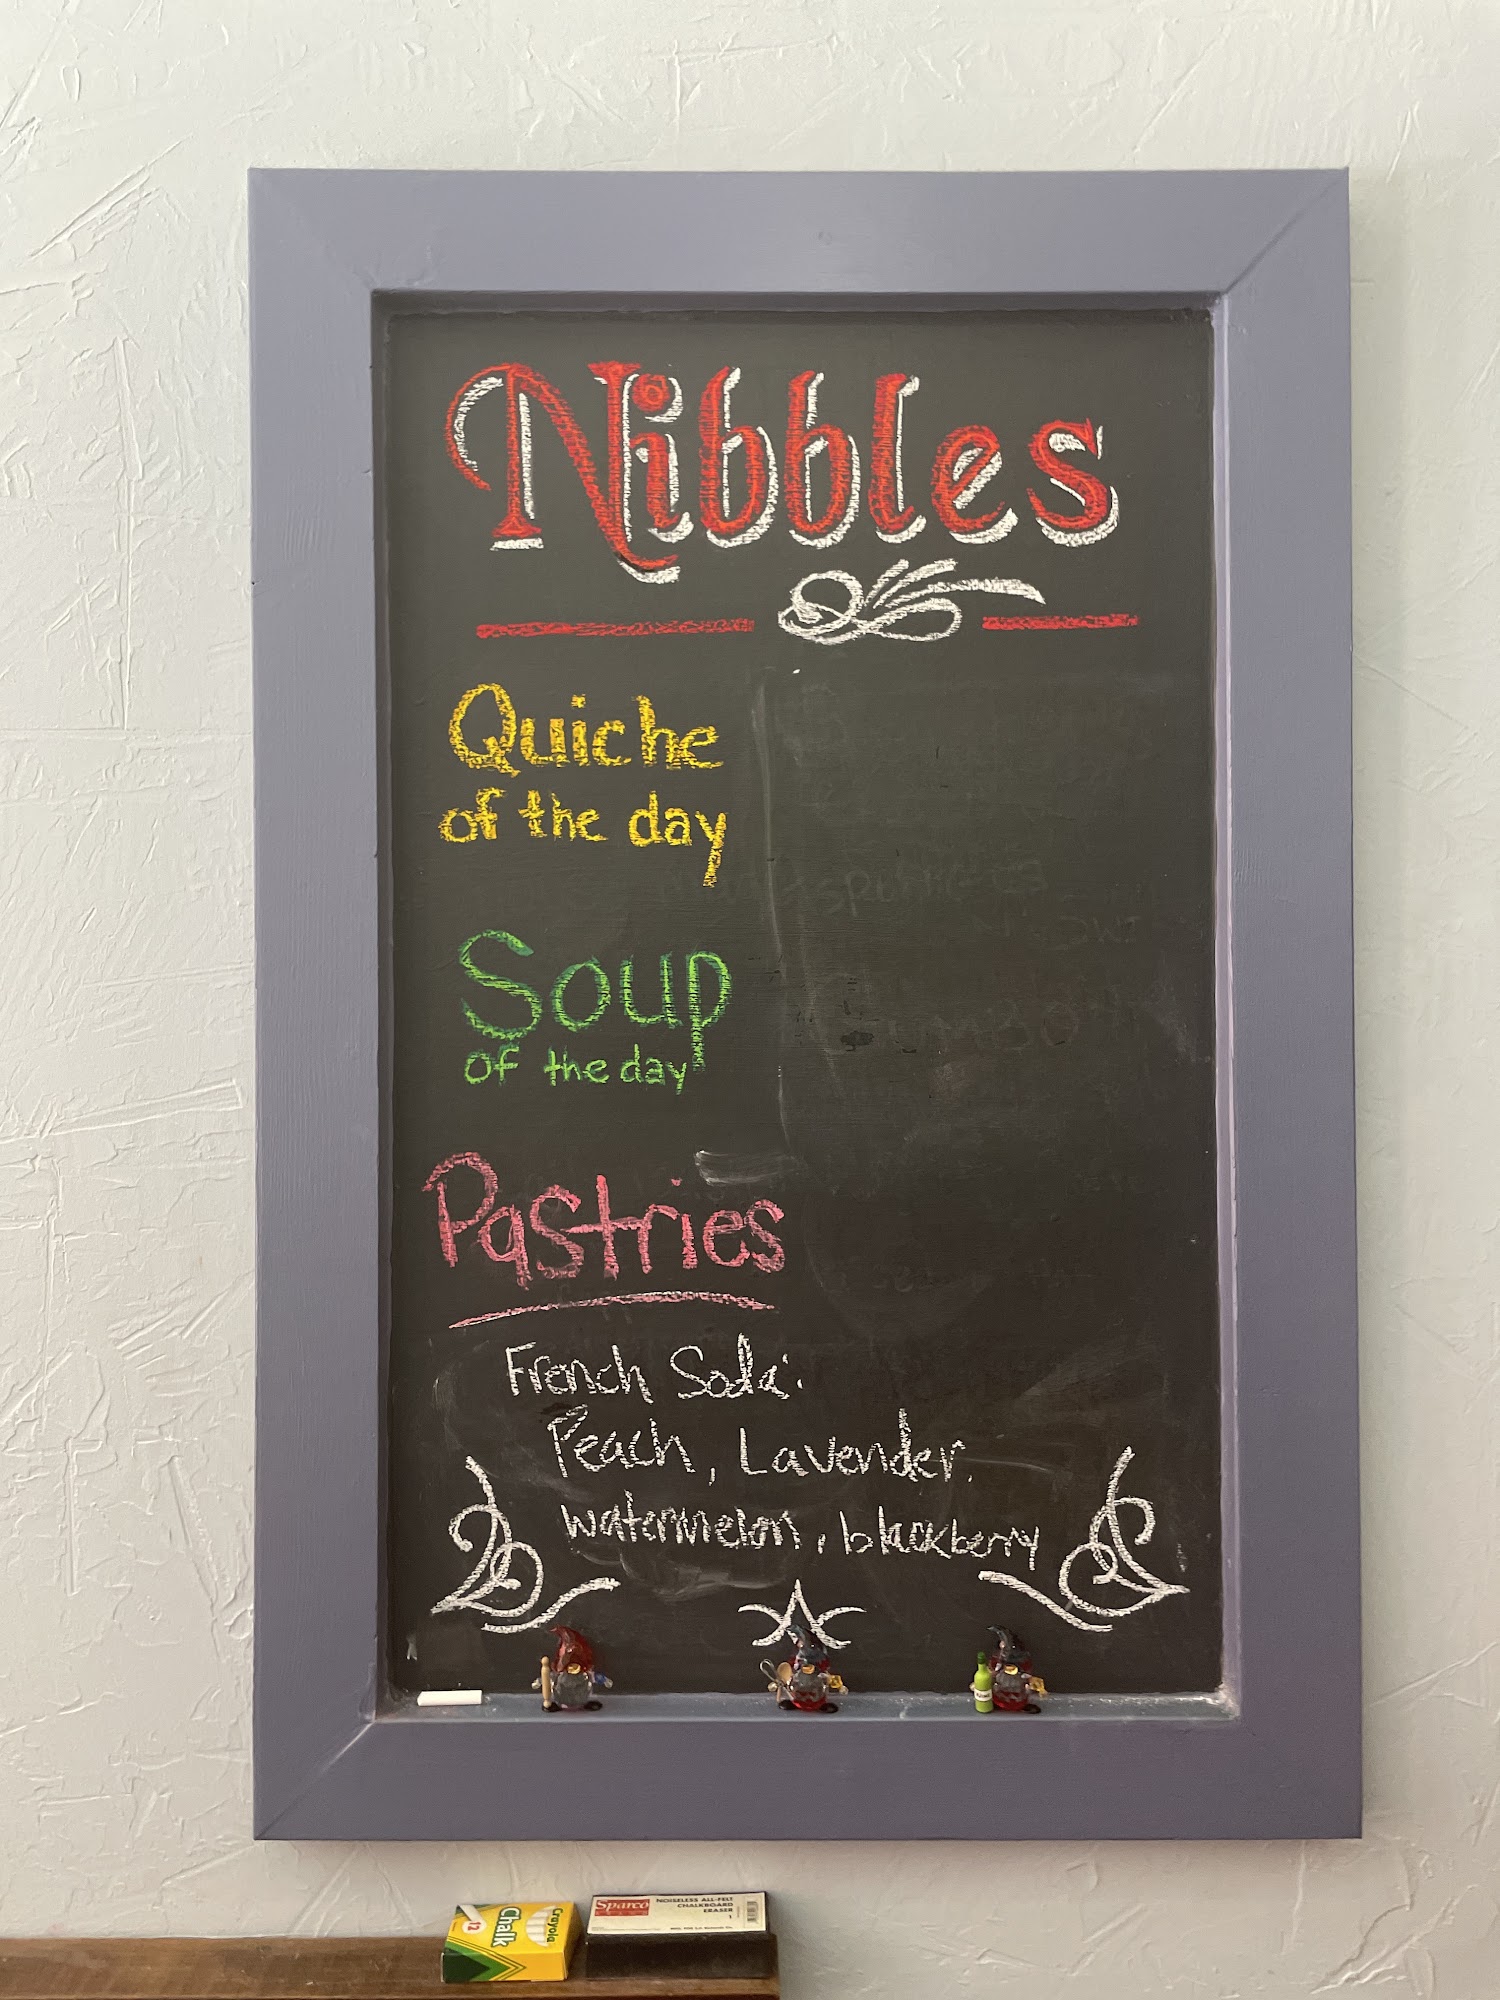 Nibbles
Quiche
of the day
Soup
of the day
Pastries
French Soda:
Peach, Lavender,
watermelon, blackberry
Crayola
Chalk
12
Sparco
NOISELESS ALL-FELT
CHALKBOARD
ERASER
1